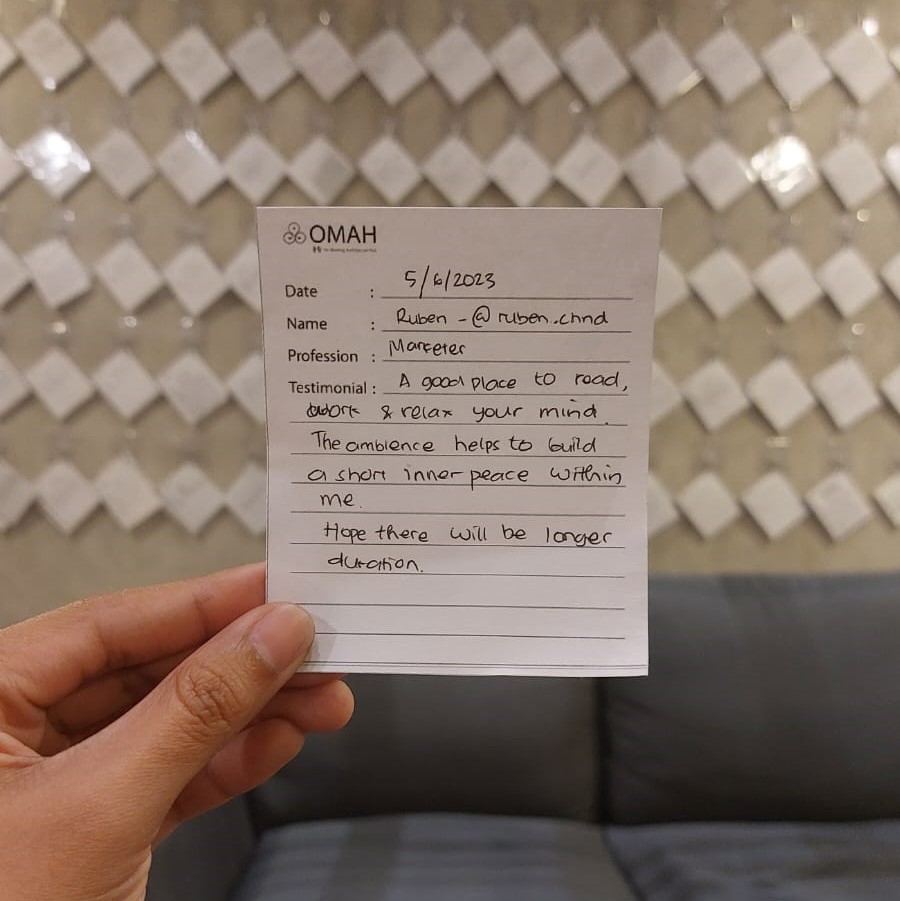 OMAH
Date : 5/6/2023
Name : Ruben - @ruben.chnd
Profession : Marketer
Testimonial : A good place to read,
work & relax your mind.
The ambience helps to build
a short inner peace within
me.
Hope there will be longer
duration.